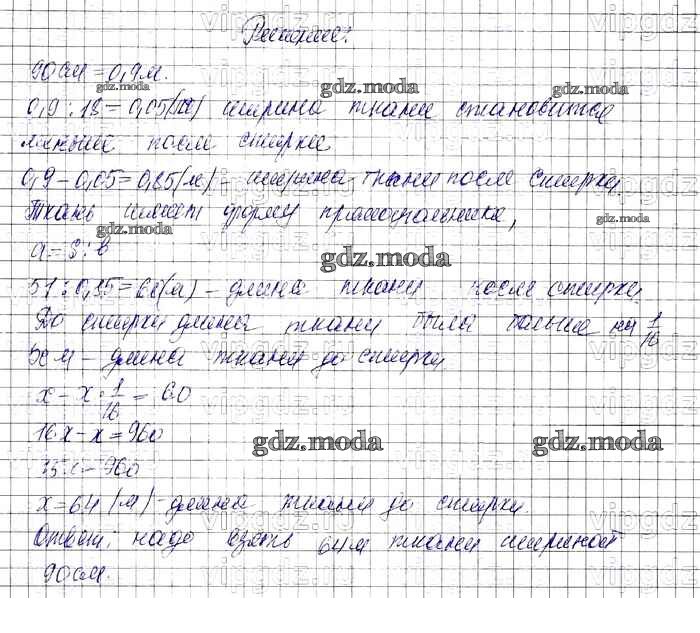 Решение:
90 см = 0,9 м.
0,9 : 18 = 0,05 (м) ширина ткани становится
меньше после стирки
0,9 - 0,05 = 0,85 (м) - ширина ткани после стирки
Ткань имеет форму прямоугольника,
a = S : b
51 : 0,85 = 60 (м) - длина ткани после стирки.
До стирки длина ткани была больше на 1/16
x м - длина ткани до стирки
x - x · 1/16 = 60
16x - x = 960
15x = 960
x = 64 (м) - длина ткани до стирки.
Ответ: надо взять 64 м ткани шириной
90 см.
gdz.moda
gdz.moda
gdz.moda
gdz.moda
gdz.moda
gdz.moda
gdz.moda
gdz.moda
gdz.moda